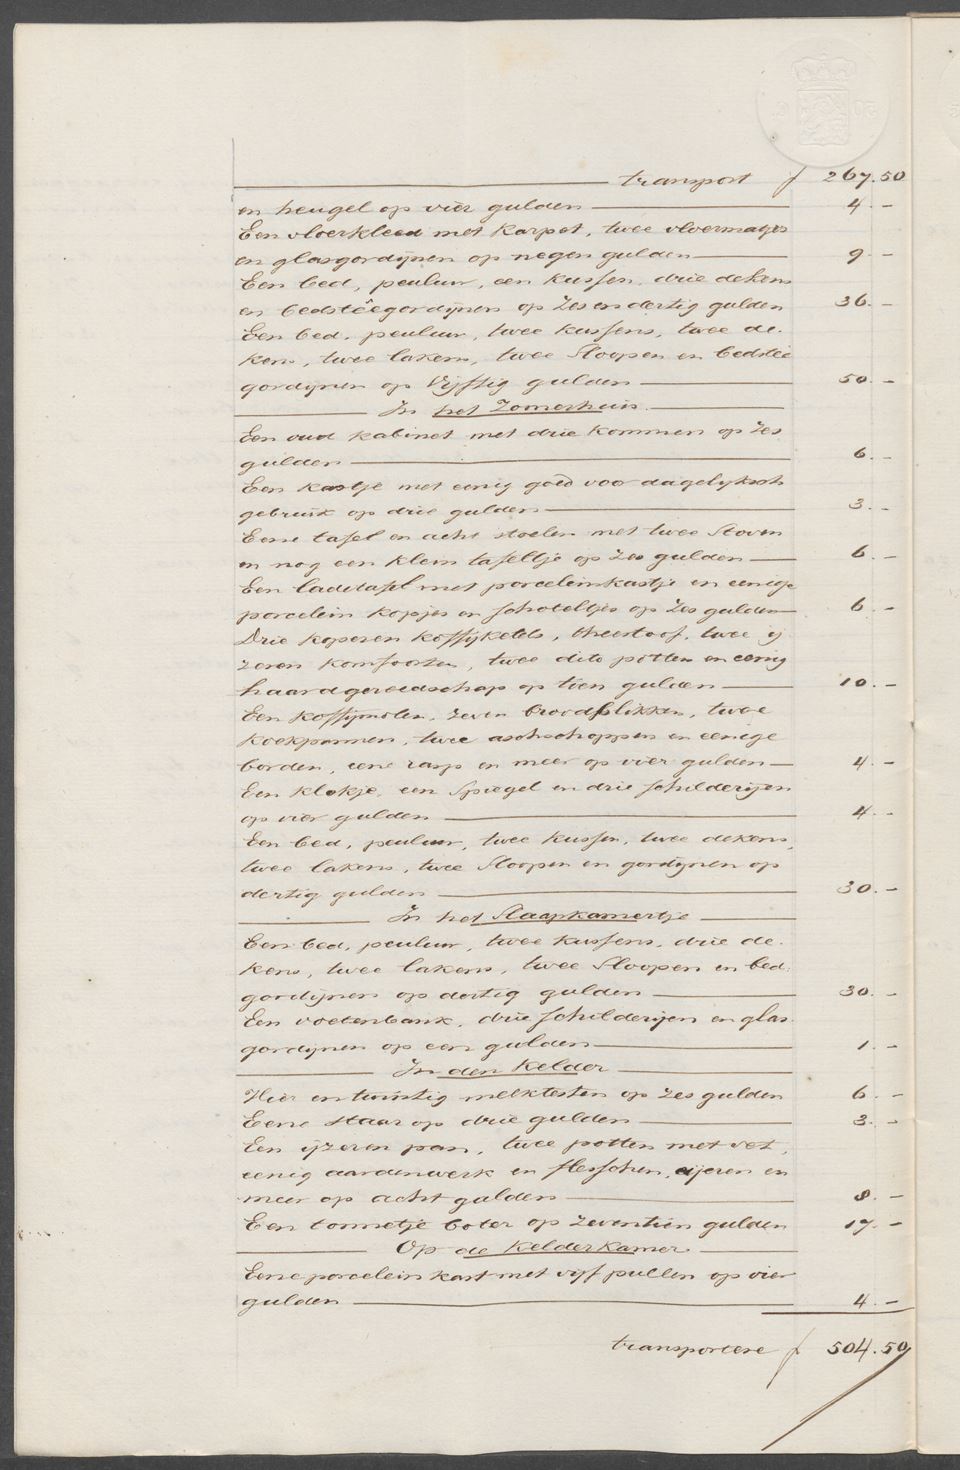 transport f 267.50
en heugel op vier gulden 4.-
Een vloerkleed met karpet, twee vloermatjes
en glasgordijnen op negen gulden 9-
Een bed, peuluw, een kussen, drie dekens
en bedstêegordijnen op zes en dertig gulden 36.-
Een bed, peuluw, twee kussens, twee de-
kens, twee lakens, twee sloopen en bedstee
gordijnen op vijftig gulden 50.-
In het Zomerhuis.
Een oud kabinet met drie kommen op zes
gulden 6.-
Een kastje met eenig goed voor dagelijksch
gebruik op drie gulden 3.-
Eene tafel en acht stoelen met twee stoven
en nog een klein tafeltje op zes gulden 6.-
Een ladetafel met porceleinkastje en eenige
porcelein kopjes en schoteltjes op zes gulden 6.-
Drie koperen koffijketels, theestoof, twee ij
zeren komfooren, twee dito potten en eenig
haardgereedschap op tien gulden 10.-
Een koffijmolen, zeven broodblikken, twee
koekpannen, twee aschschoppen en eenige
borden, eene rasp en meer op vier gulden 4.-
Een klokje, een spiegel en drie schilderijen
op vier gulden 4.-
Een bed, peuluw, twee kussen, twee dekens,
twee lakens, twee sloopen en gordijnen op
dertig gulden 30.-
In het Slaapkamertje
Een bed, peuluw, twee kussens, drie de-
kens, twee lakens, twee sloopen en bed-
gordijnen op dertig gulden 30.-
Een voetenbank, drie schilderijen en glas-
gordijnen op een gulden 1.-
In den Kelder
Vier en twintig melktesten op zes gulden 6.-
Eene staar op drie gulden 3.-
Een ijzeren pan, twee potten met vet,
eenig aardenwerk en flesschen, eijeren en
meer op acht gulden 8.-
Een tonnetje boter op zeventien gulden 17.-
Op de Kelderkamer
Eene porcelein kast met vijf pullen op vier
gulden 4.-
transportere f 504.50